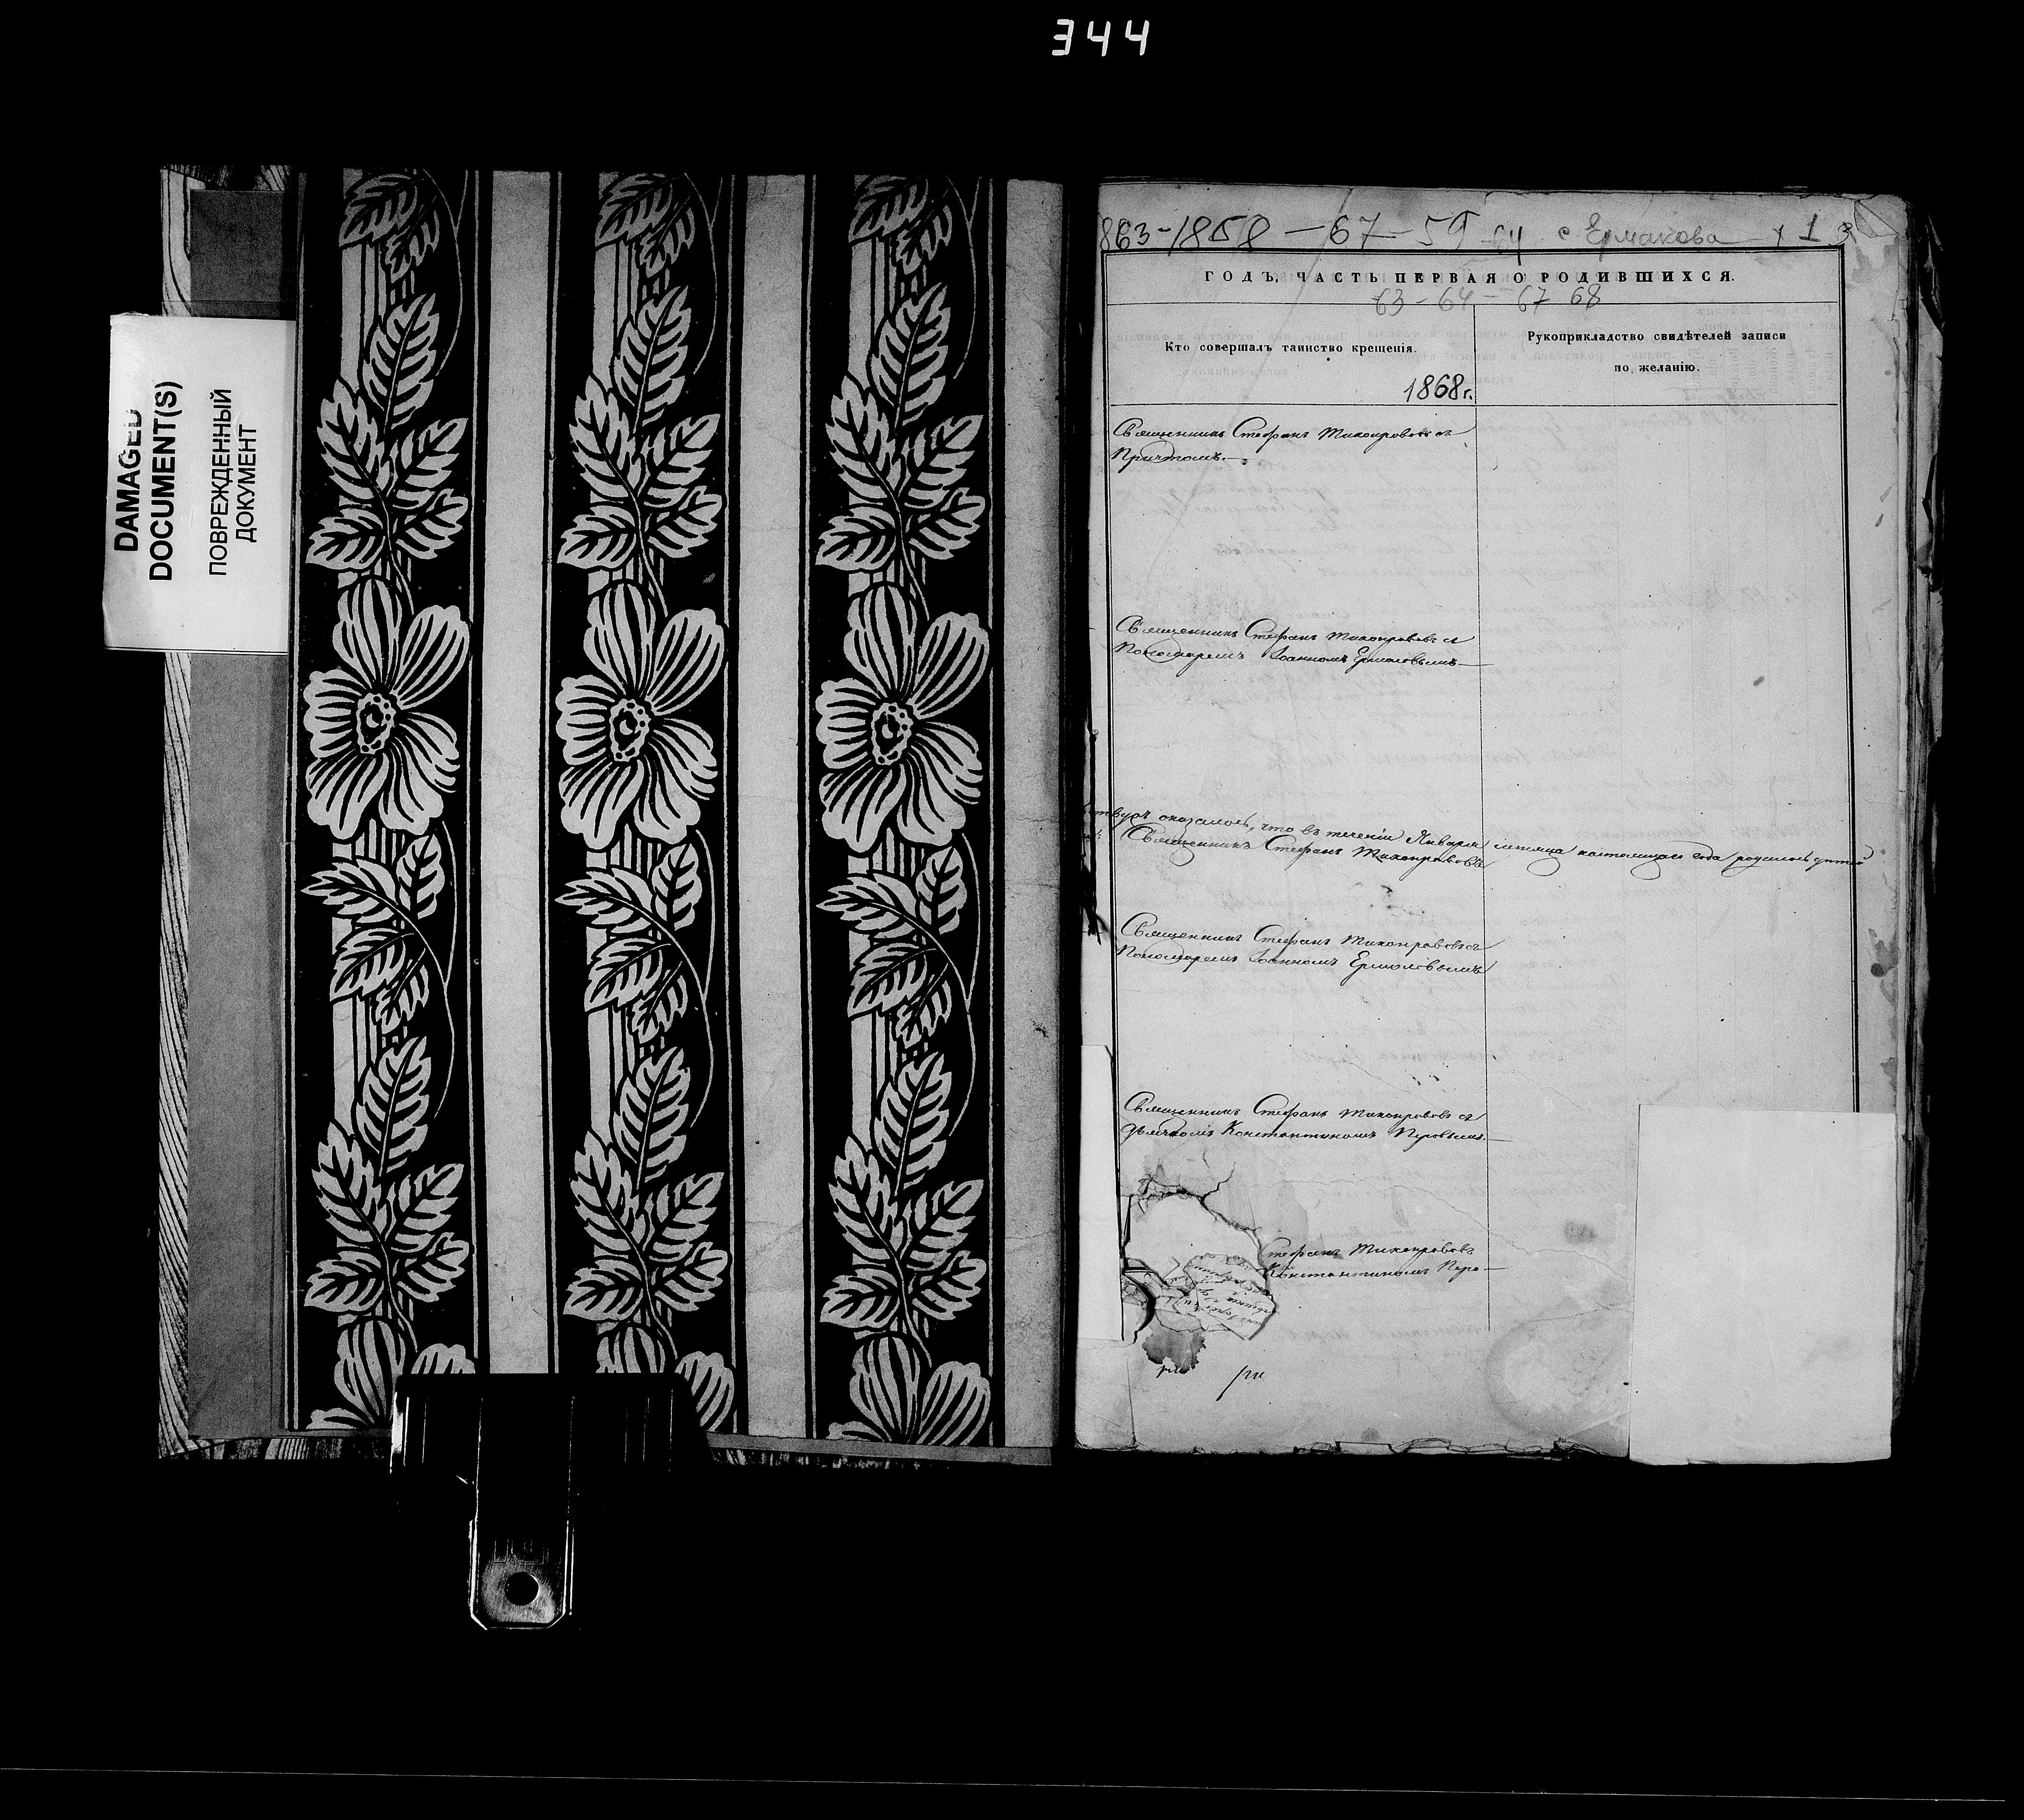 344
DAMAGED
DOCUMENT(S)
ПОВРЕЖДЕННЫЙ
ДОКУМЕНТ
863-1858-67-59 64 с Ермакова 1
ГОДЪ, ЧАСТЬ ПЕРВАЯ О РОДИВШИХСЯ.
63-64-67 68
Кто совершалъ таинство крещенія.
1868 г.
Рукоприкладство свидѣтелей записи
по желанію.
Священникъ Стефанъ Тихонравовъ съ
Причтомъ.
Священникъ Стефанъ Тихонравовъ съ
Пономаремъ Іоанномъ Ермоловымъ
оказалось, что въ теченіи Января мѣсяца настоящаго года родилось дѣтей
Священникъ Стефанъ Тихонравовъ
Священникъ Стефанъ Тихонравовъ съ
Пономаремъ Іоанномъ Ермоловымъ
Священникъ Стефанъ Тихонравовъ съ
Дьячкомъ Константиномъ Перовымъ.
Стефанъ Тихонравовъ
Константиномъ Перо-